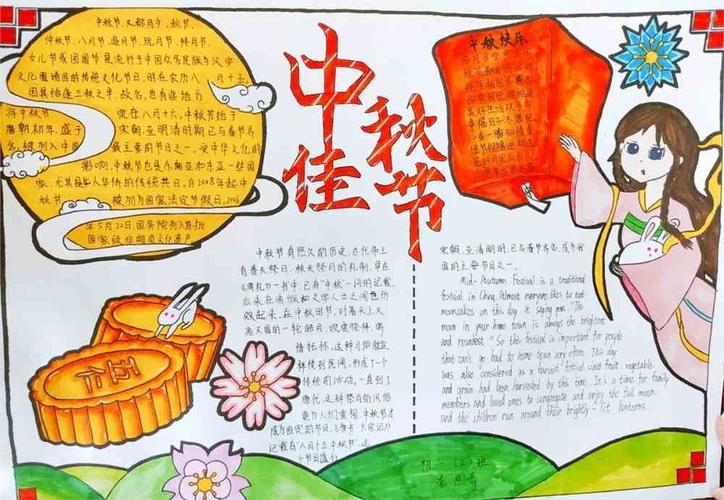 中秋佳节
中秋节,又称月夕、秋节、
仲秋节、八月节、追月节、玩月节、拜月节、
女儿节或团圆节是流行于中国众多民族与汉字
文化圈诸国的传统文化节日,时在农历八月十五,
因其恰值三秋之半,故名,也有些地方
将中秋节
定在八月十六。中秋节始于
唐朝初年,盛于
宋朝,至明清时期已与春节齐
名,被列入中国
最主要的节日之一。受中华文化的
影响,中秋节也是东南亚和东亚一些国
家、尤其是华人华侨的传统节日,自2008年起中
秋节
被列为国家法定节假日,2006
年5月20日,国务院列入首批
国家级非物质文化遗产
中秋快乐
中秋节有悠久的历史,古代帝王
有春天祭日,秋天祭月的礼制,早在
《周礼》一书中,已有"中秋"一词的记载,
后来在贵族和文人学士之间也仿
效起来,在中秋时节,对着天上又
亮又圆的一轮皓月,观赏祭拜,寄
情托怀,这种习俗就这
样传到民间,形成了一个
传统的活动,一直到了
唐代,这种祭月的风俗
更为人们重视,中秋节才
成为固定的节日,《唐书·太宗记》
记载有"八月十五中秋节",这
个节日盛行
宋朝,至清明时,已与春节齐名,成为我
国的主要节日之一。
Mid-Autumn Festival is a traditional
festival in China. Almost everyone likes to eat
mooncakes on this day. A saying goes "The
moon in your home town is always the brightest
and roundest." So this festival is important for people
that can't go back to home town very often. This day
was also considered as a harvest festival since fruit vegetable
and grain had been harvested by this time. It is a time for family
members and loved ones to congregate and enjoy the full moon
and the children run around their brightly-lit lanterns.
初一(2)班